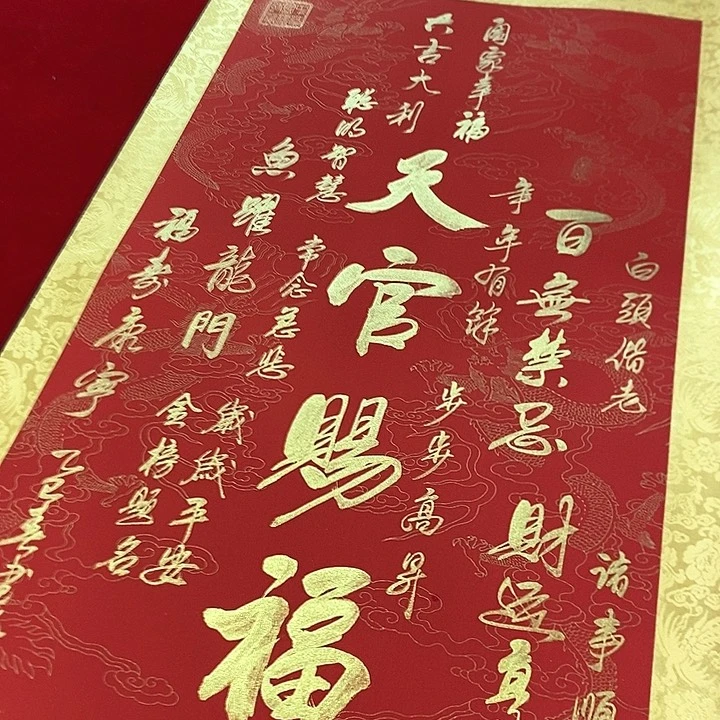 白頭偕老
諸事順
百無禁忌
財運亨
闔家幸福
年年有餘
步步高昇
大吉大利
天官賜福
聰明智慧
常念慈悲
歲歲平安
魚躍龍門
金榜題名
福壽康寧
乙巳春書